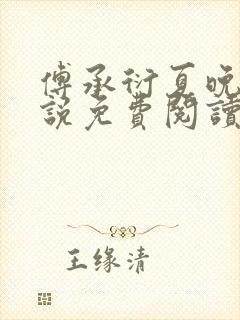 傅承衍夏晚
説免費閱讀
王缘清